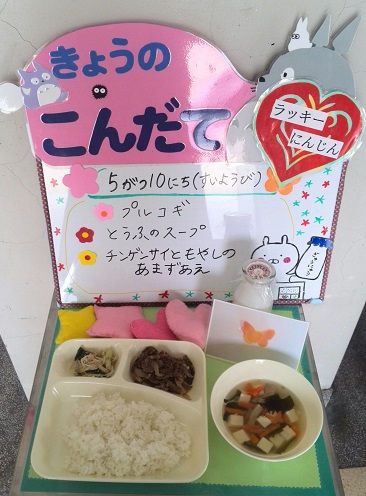 きょうの
こんだて
ラッキー
にんじん
5がつ10にち(すいようび)
プルコギ
とうふのスープ
チンゲンサイともやしの
あまずあえ